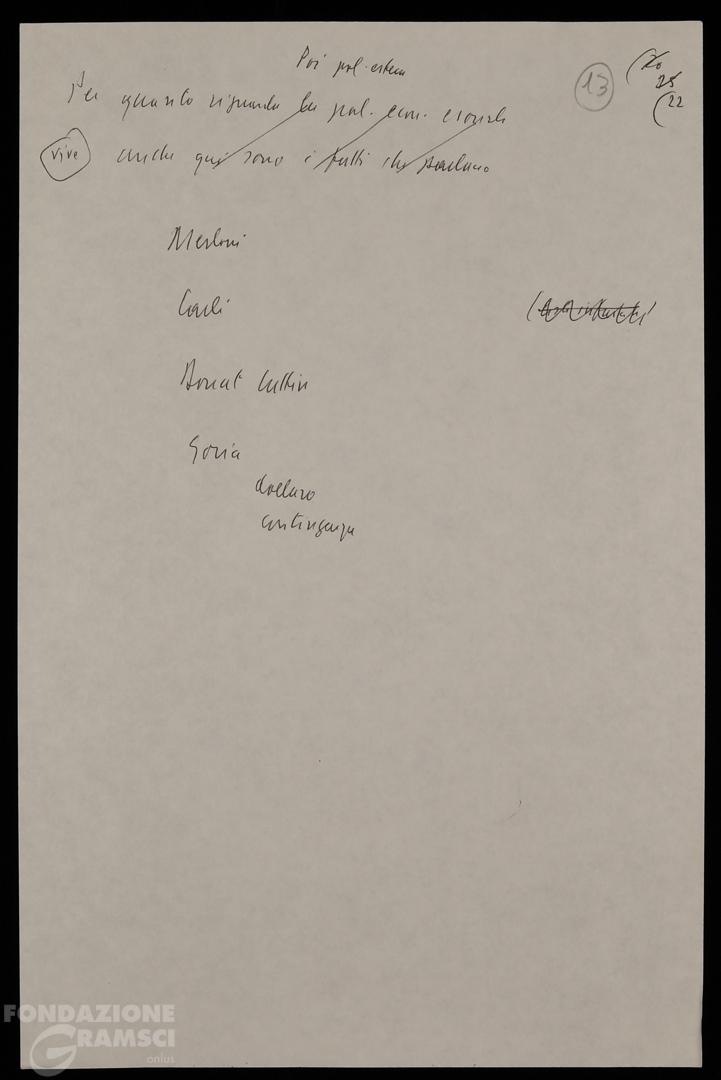 Poi pol. estera
13
22
Per quanto riguarda la pol. econ. e sociale
vive
anche qui sono i fatti che parlano
Merloni
Carli
Donat Cattin
Goria
dollaro
contingenza
FONDAZIONE
GRAMSCI
onlus